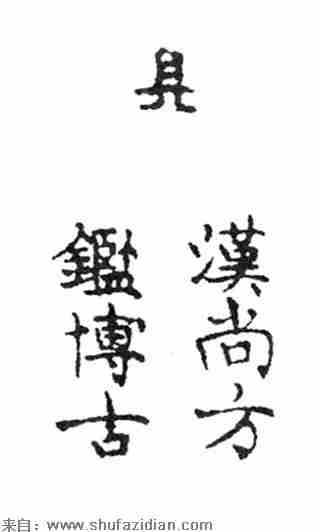 具
漢尚方
鑑博古
来自：www.shufazidian.com